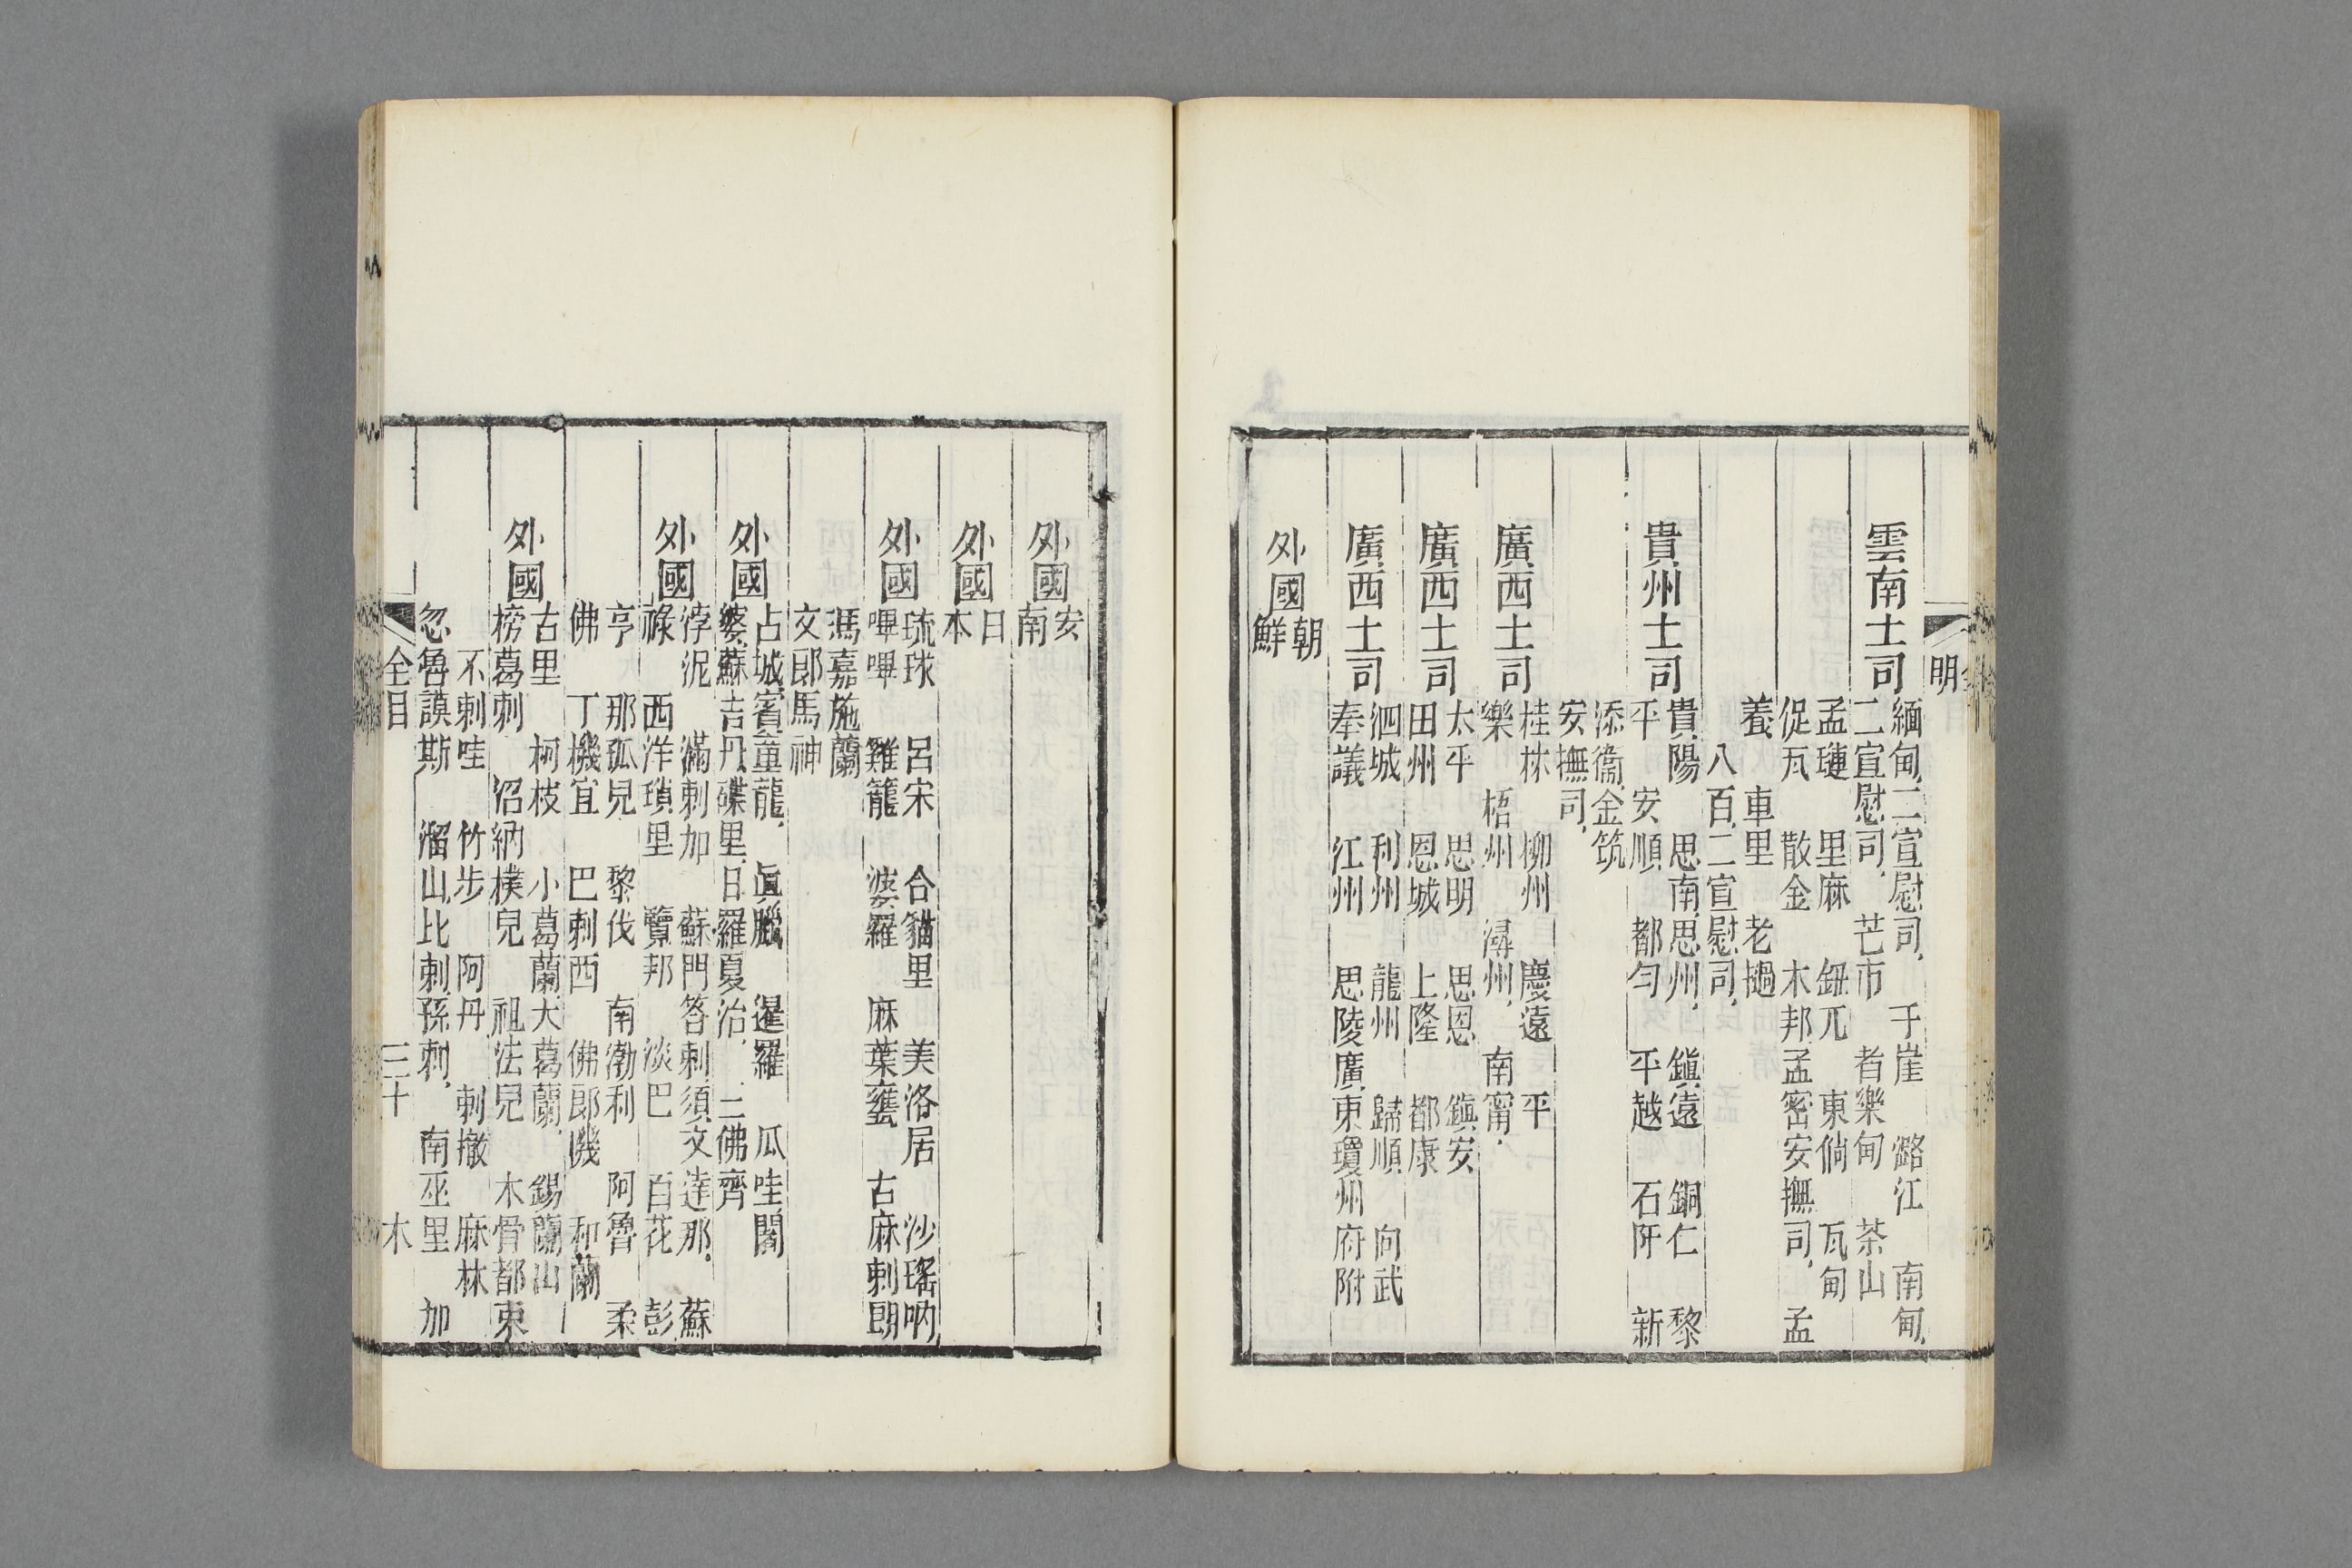 明
雲南土司
緬甸二宣慰司 干崖 潞江 南甸
二宣慰司 芒市 者樂甸 茶山
孟璉 里麻 鈕兀 東倘 瓦甸
促瓦 散金 木邦孟密安撫司 孟
養 車里 老撾
八百二宣慰司
貴州土司
貴陽 思南思州 鎮遠 銅仁 黎
平 安順 都勻 平越 石阡 新
添衞金筑
安撫司
廣西土司
桂林 柳州 慶遠 平
樂 梧州 潯州 南甯
廣西土司
太平 思明 思恩 鎮安
田州 恩城 上隆 都康
廣西土司
泗城 利州 龍州 歸順 向武
奉議 江州 思陵廣東瓊州府附
外國
朝
鮮
外國
安
南
外國
日
本
外國
琉球 呂宋 合貓里 美洛居 沙瑤吶
嗶嗶 雞籠 婆羅 麻葉甕 古麻剌朗
馮嘉施蘭
文郎馬神
外國
占城賓童龍 眞臘 暹羅 瓜哇闍
婆蘇吉丹碟里日羅夏治 二佛齊
外國
浡泥 滿剌加 蘇門答剌須文達那 蘇
祿 西洋瑣里 覽邦 淡巴 百花 彭
亨 那孤兒 黎伐 南渤利 阿魯 柔
佛 丁機宜 巴剌西 佛郎機 和蘭
外國
古里 柯枝 小葛蘭大葛蘭 錫蘭山
榜葛剌 沼納樸兒 祖法兒 木骨都束
不剌哇 竹步 阿丹 剌撒 麻林
忽魯謨斯 溜山比剌孫剌 南巫里 加
全目 三十 木